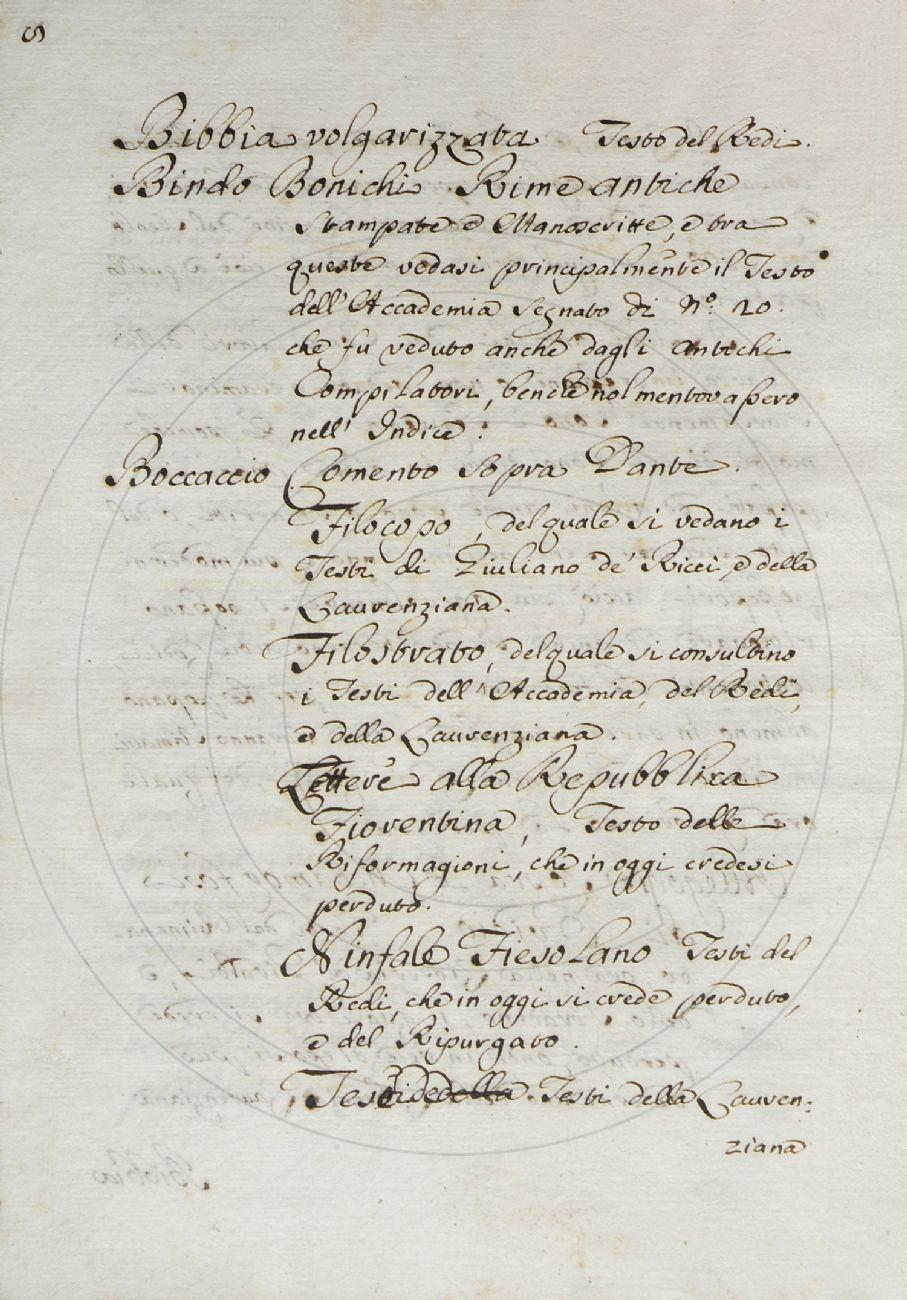 8
Bibbia volgarizzata Testo del Redi.
Bindo Bonichi Rime antiche
Stampate e Manoscritte, e tra
queste vedasi principalmente il Testo
dell'Accademia segnato di Nº. 20.
che fu veduto anche dagli antichi
Compilatori, benche nol mentova pero
nell' Indice.
Boccaccio Comento sopra Dante.
Filocopo, del quale si vedano i
Testi di Giuliano de' Ricci, e della
Laurenziana.
Filostrato, del quale si consultino
i Testi dell'Accademia, del Redi,
e della Laurenziana.
Lettere alla Repubblica
Fiorentina, Testo delle
Riformagioni, che in oggi credesi
perduto.
Ninfale Fiesolano Testi del
Redi, che in oggi si crede perduto,
e del Ripurgato.
Teseide Testi della Lauren:
ziana